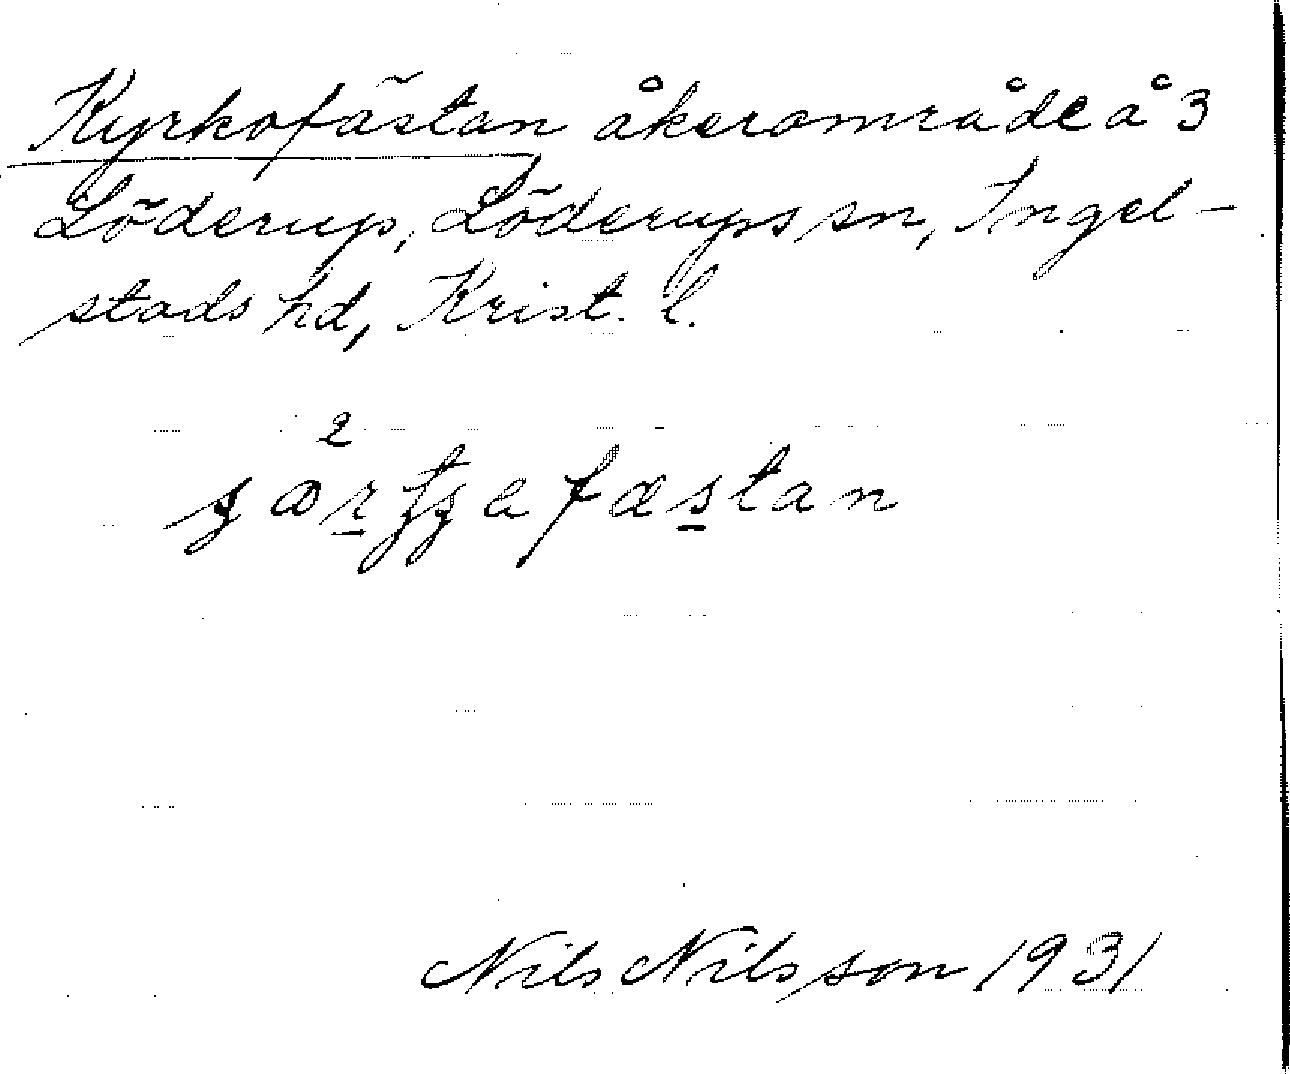 Kyrkofästan åkerområde å 3
Löderup, Löderups sn, Ingel-
stads hd, Krist. l.
Nils Nilsson 1931